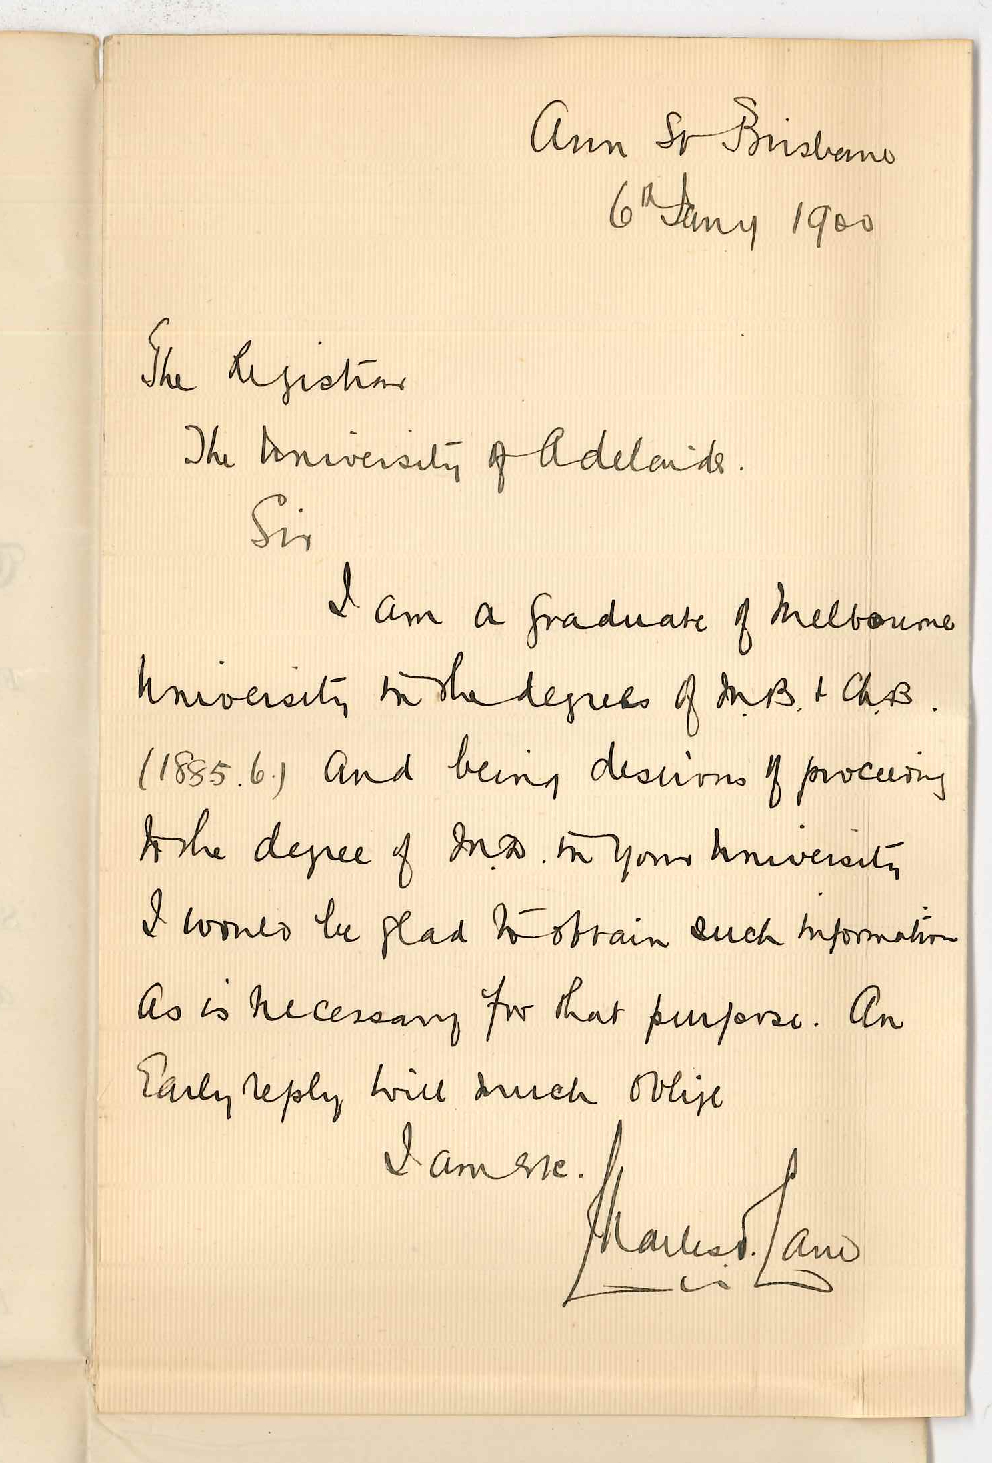 Ann St Brisbane
6th Jany 1900
The Registrar
The University of Adelaide.
Sir
I am a graduate of Melbourne
University in the degrees of M.B. & Ch.B.
(1885.6.) And being desirous of proceeding
to the degree of M.D. in your University
I would be glad to obtain such information
As is necessary for that purpose. An
Early reply will much oblige
I am etc.
Charles J. Lane